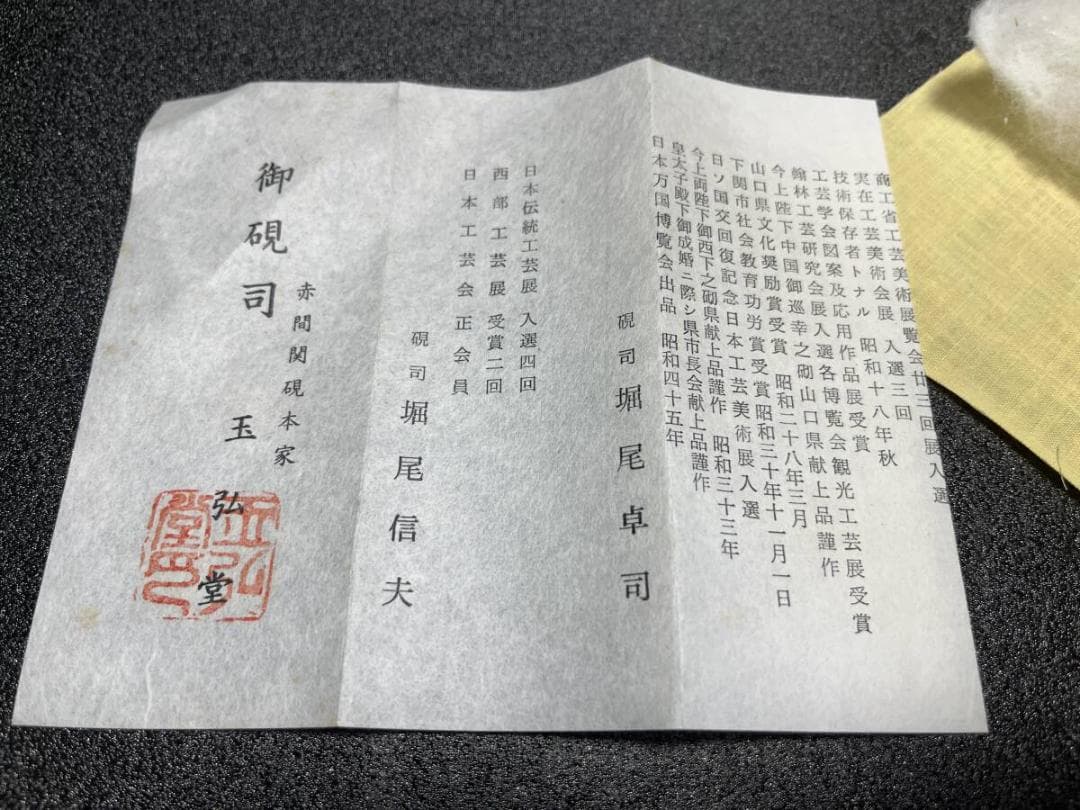 商工省工芸美術展覧会廿三回展入選
実在工芸美術会展 入選三回
技術保存者トナル 昭和十八年秋
工芸学会図案及応用作品展受賞
翰林工芸研究会展入選各博覧会観光工芸展受賞
今上陛下中国御巡幸之砌山口県献上品謹作
山口県文化奨励賞受賞 昭和二十八年三月
下関市社会教育功労賞受賞昭和三十年十一月一日
日ソ国交回復記念日本工芸美術展入選
今上両陛下御西下之砌県献上品謹作 昭和三十三年
皇太子殿下御成婚ニ際シ県市長会献上品謹作
日本万国博覧会出品 昭和四十五年
硯司 堀尾卓司
日本伝統工芸展 入選四回
西部工芸展 受賞二回
日本工芸会正会員
硯司 堀尾信夫
赤間関硯本家
御硯司 玉弘堂
玉弘堂印